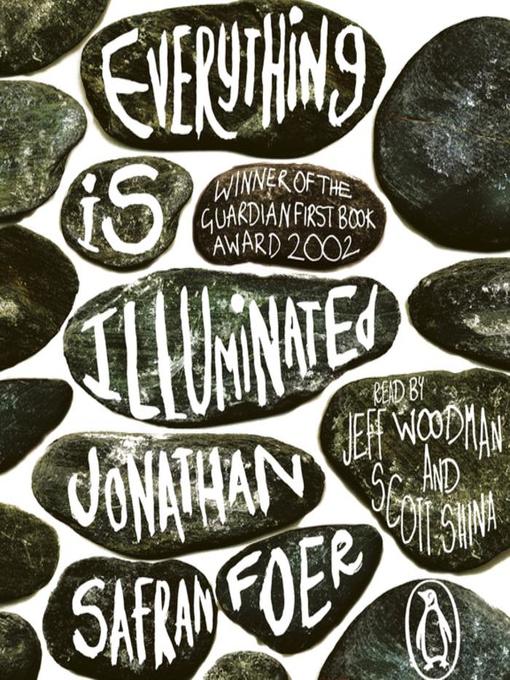 EVERYTHING
iS
WINNER OF THE
GUARDIAN FIRST BOOK
AWARD 2002
ILLUMiNATEd
JONATHAN
SAFRAN FOER
READ BY
JEFF WOODMAN
AND
SCOTT SHINA